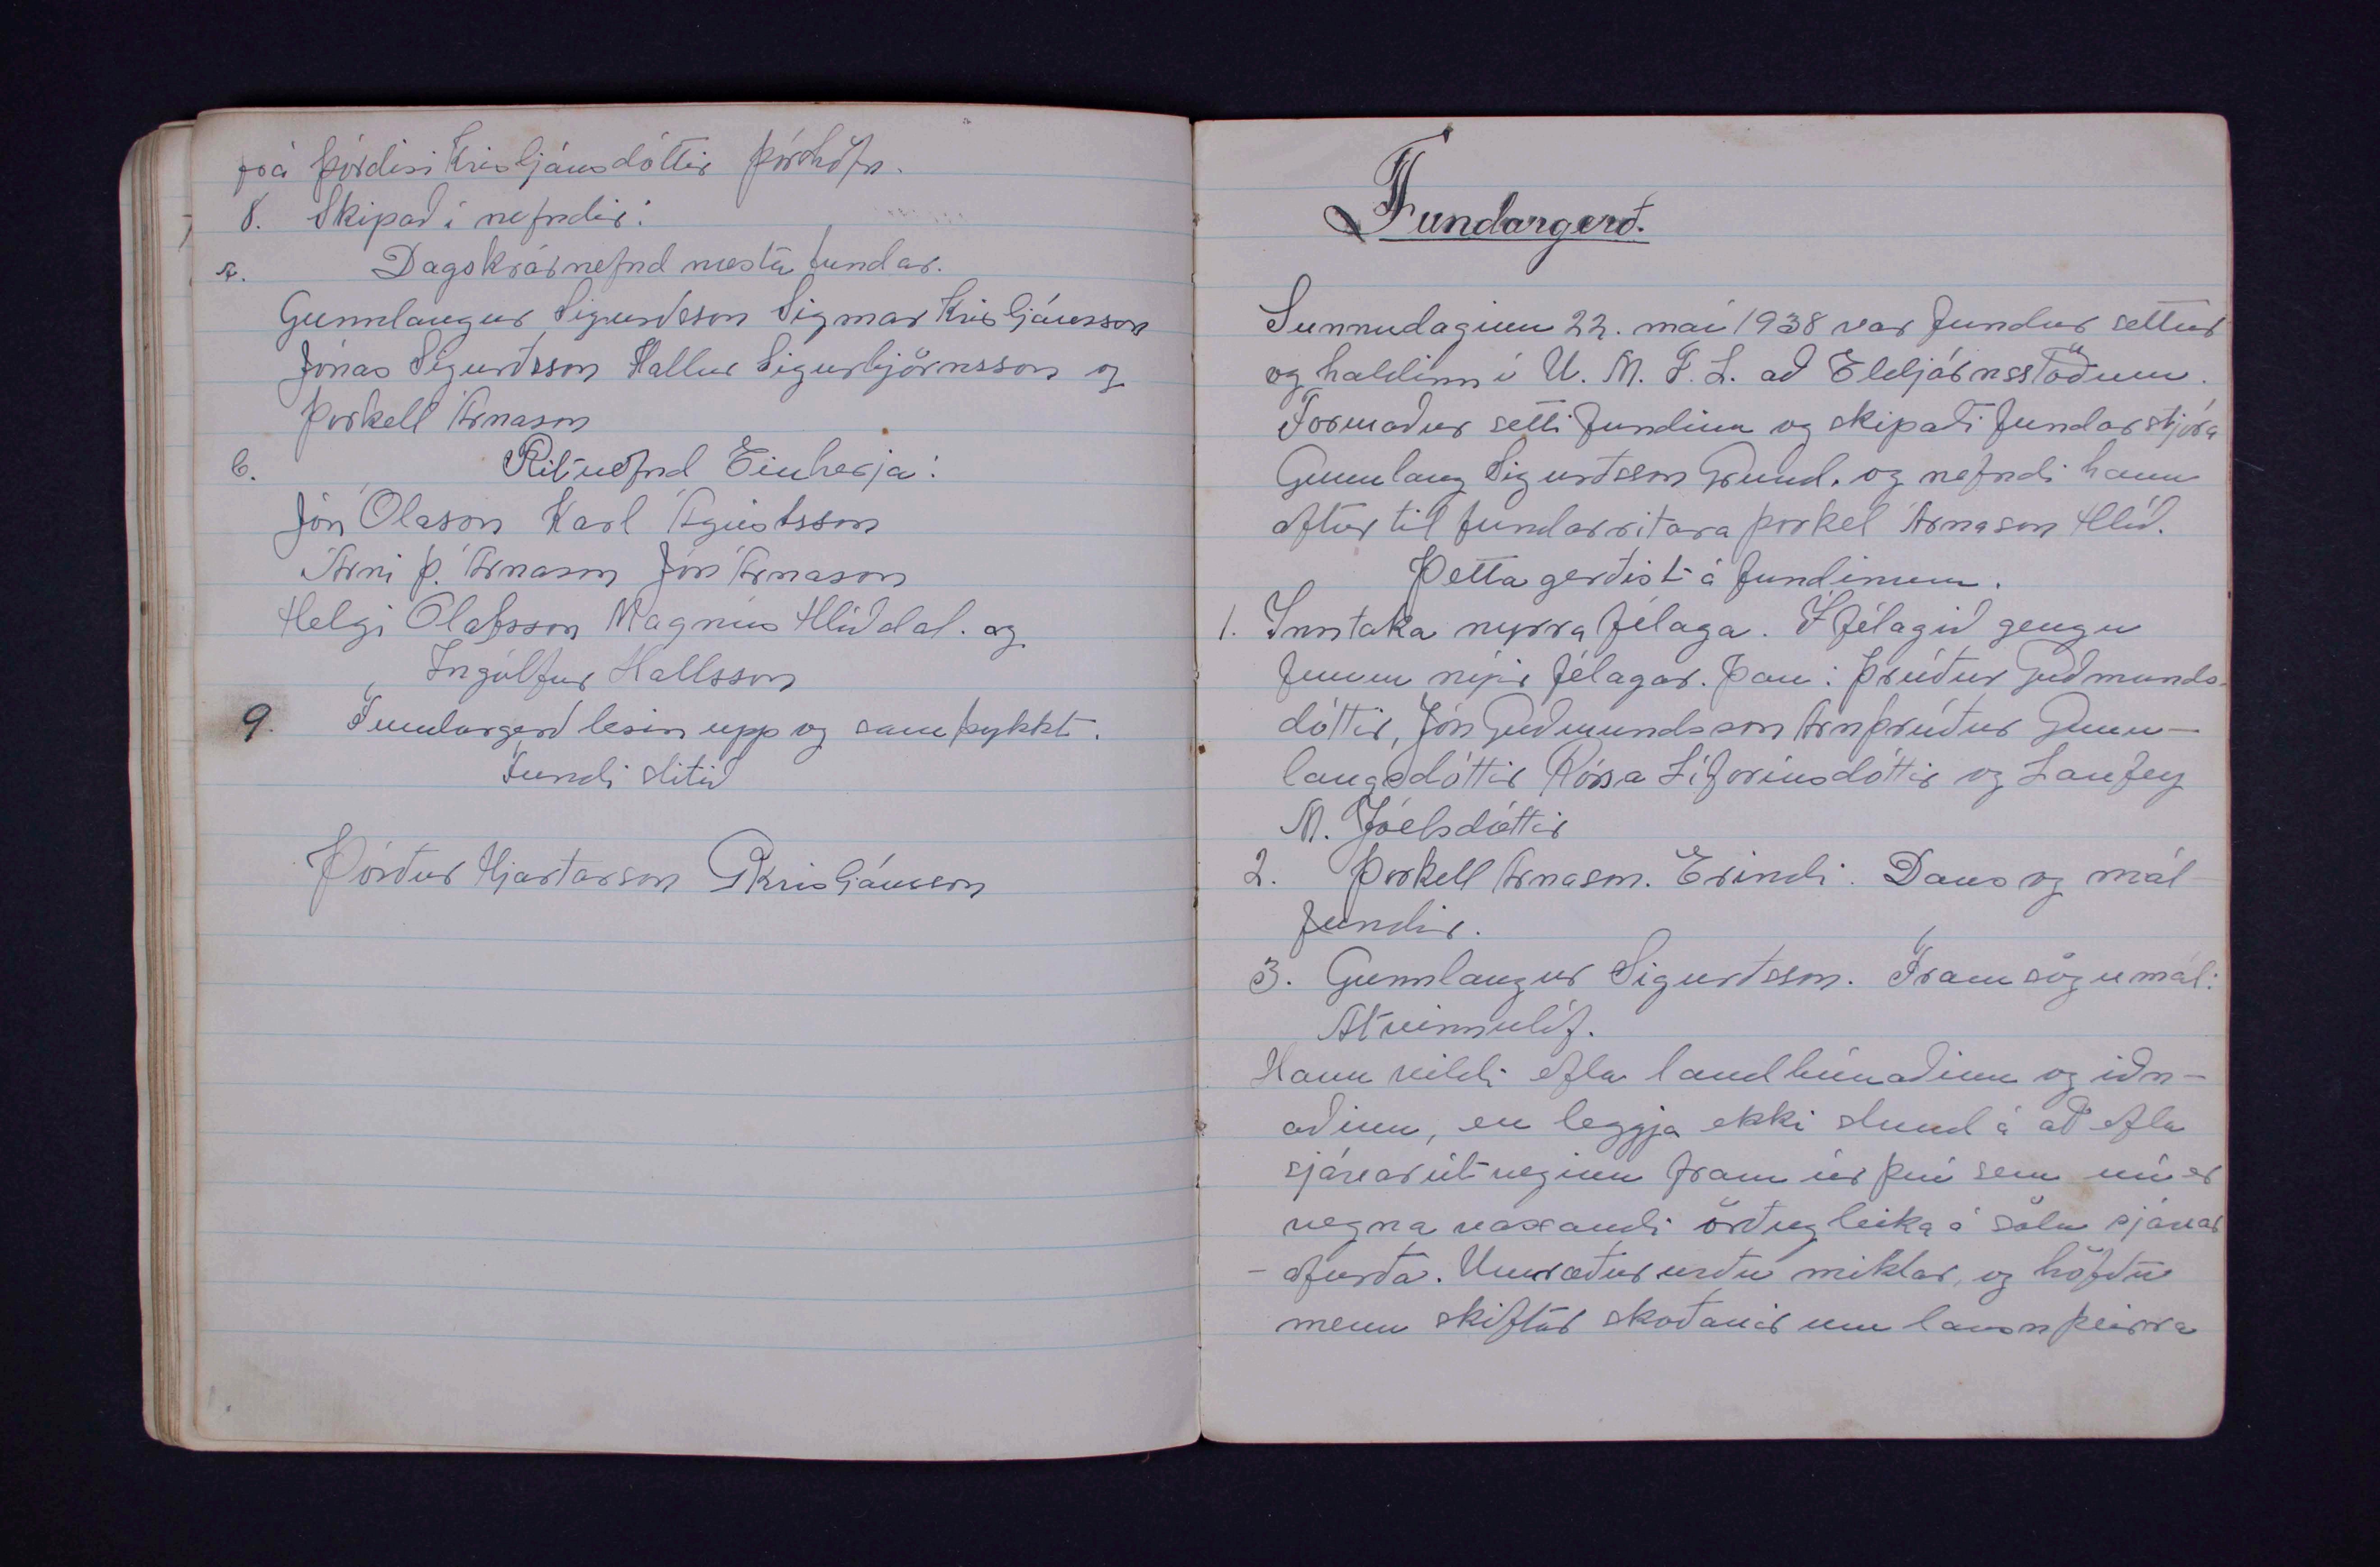 frá Þórdísi Kristjánsdóttir Þórshöfn.
8. Skipað í nefndir:
A. Dagskrárnefnd næsta fundar.
Gunnlaugur Sigurðsson Sigmar Kristjánsson
Jónas Sigurðsson Hallur Sigurbjörnsson og
Þorkell Árnason
B. Ritnefnd Einherja:
Jón Ólason Karl Ágústsson
Árni Þ. Árnason Jón Árnason
Helgi Ólafsson Magnús Hlíðdal. og
Ingólfur Hallsson
9. Fundargerð lesin upp og samþykkt.
Fundi slitið
Þórður Hjartarson Kristjánsson
Fundargerð.
Sunnudaginn 22. maí 1938 var fundur settur
og haldinn í U. M. F. L. að Eldjárnsstöðum.
Formaður setti fundinn og skipaði fundarstjóra
Gunnlaug Sigurðsson Grund. og nefndi hann
aftur til fundarritara Þorkel Árnason Hlíð.
Þetta gerðist á fundinum.
1. Inntaka nýrra félaga. Í félagið gengu
fimm nýir félagar. Þau: Þrúður Guðmunds-
dóttir, Jón Guðmundsson Arnþrúður Gunn-
laugsdóttir Rósa Líforíusdóttir og Laufey
M. Jóelsdóttir
2. Þorkell Árnason. Erindi. Dans og mál-
fundir.
3. Gunnlaugur Sigurðsson. Framsögumál:
Atvinnulíf.
Hann vildi efla landbúnaðinn og iðn-
aðinn, en leggja ekki stund á að efla
sjávarútveginn fram úr því sem nú er
vegna vaxandi örðugleika á sölu sjávar
- afurða. Umræður urðu miklar, og höfðu
menn skiftar skoðanir um lausn þeirra